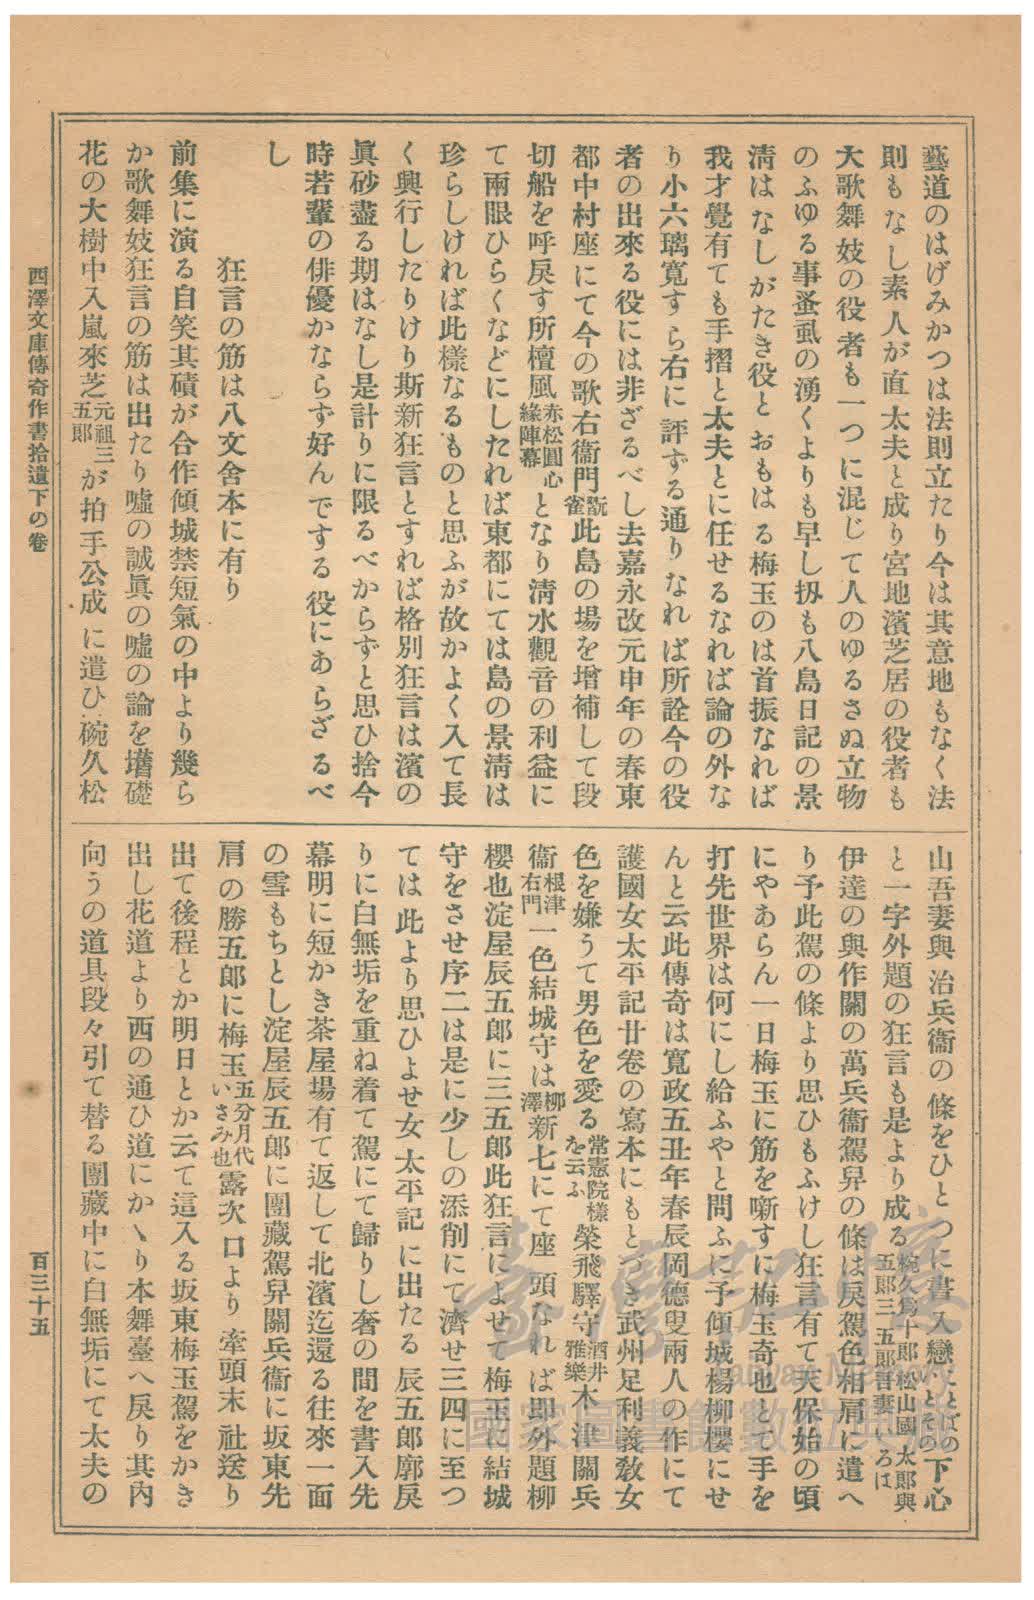 藝道のはげみかつは法則立たり今は其意地もなく法
則もなし素人が直太夫と成り宮地濱芝居の役者も
大歌舞妓の役者も一つに混じて人のゆるさぬ立物
のふゆる事蚤虱の湧くよりも早し扨も八島日記の景
淸はなしがたき役とおもはる梅玉のは首振なれば
我才覺有ても手摺と太夫とに任せるなれば論の外な
り小六璃寬すら右に評ずる通りなれば所詮今の役
者の出來る役には非ざるべし去嘉永改元申年の春東
都中村座にて今の歌右衞門翫雀此島の場を增補して段
切船を呼戾す所檀風赤松圓心緣陣幕となり淸水觀音の利益に
て兩眼ひらくなどにしたれば東都にては島の景淸は
珍らしければ此樣なるものと思ふが故かよく入て長
く興行したりけり斯新狂言とすれば格別狂言は濱の
眞砂盡る期はなし是計りに限るべからずと思ひ捨今
時若輩の俳優かならず好んでする役にあらざるべ
し
狂言の筋は八文舍本に有り
前集に演る自笑其磧が合作傾城禁短氣の中より幾ら
か歌舞妓狂言の筋は出たり噓の誠眞の噓の論を壒礎
花の大樹中入嵐來芝元祖三五郎が拍手公成に遣ひ碗久松
山吾妻與治兵衞の條をひとつに書入戀いとその下心
と一字外題の狂言も是より成る椀久爲十郎松山國太郎與五郎三五郎吾妻いろは
伊達の與作關の萬兵衞駕舁の條は戾駕色相肩に遣へ
り予此駕の條より思ひもふけし狂言有て天保始の頃
にやあらん一日梅玉に筋を噺すに梅玉奇也とて手を
打先世界は何にし給ふやと問ふに予傾城楊柳櫻にせ
んと云此傳奇は寬政五丑年春辰岡德叟兩人の作にて
護國女太平記廿卷の寫本にもとづき武州足利義敎女
色を嫌うて男色を愛る常憲院樣を云ふ榮飛驒守酒井雅樂木津關兵
衞根津右門一色結城守は柳澤新七にて座頭なれば即外題柳
櫻也淀屋辰五郎に三五郎此狂言によせて梅玉に結城
守をさせ序二は是に少しの添削にて濟せ三四に至つ
ては此より思ひよせ女太平記に出たる辰五郎廓戾
りに白無垢を重ね着て駕にて歸りし奢の間を書入先
幕明に短かき茶屋場有て返して北濱迄還る往來一面
の雪もちとし淀屋辰五郎に團藏駕舁關兵衞に坂東先
肩の勝五郎に梅玉五分月代いさみ也露次口より牽頭末社送り
出て後程とか明日とか云て這入る坂東梅玉駕をかき
出し花道より西の通ひ道にかゝり本舞臺へ戾り其內
向うの道具段々引て替る團藏中に白無垢にて太夫の
西澤文庫傳奇作書拾遺下の卷
百三十五
臺灣記憶
Taiwan Memory
國家圖書館數位典藏